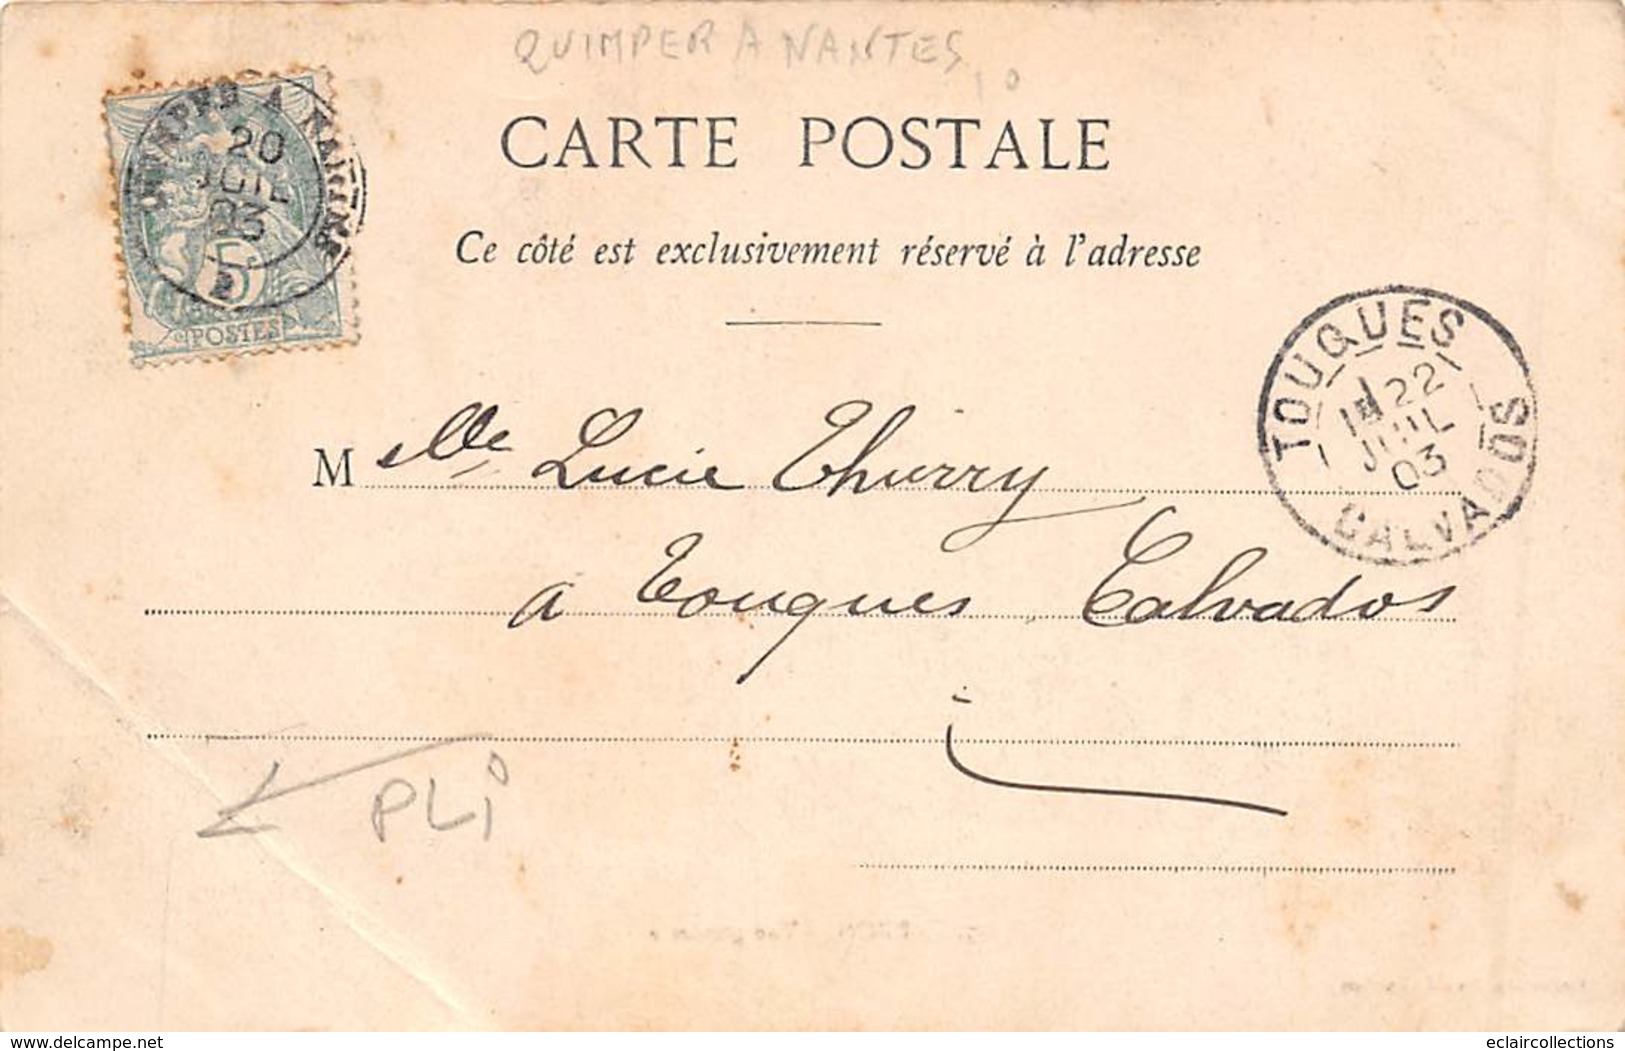 QUIMPER A NANTES
CARTE POSTALE
Ce côté est exclusivement réservé à l'adresse
QUIMPER A NANTES
20
JUIL
03
5
POSTES
TOUQUES
22
JUIL
03
CALVADOS
M elle Lucie Thurry
a Touques Calvados
PLi
delcampe.net
eclaircollections